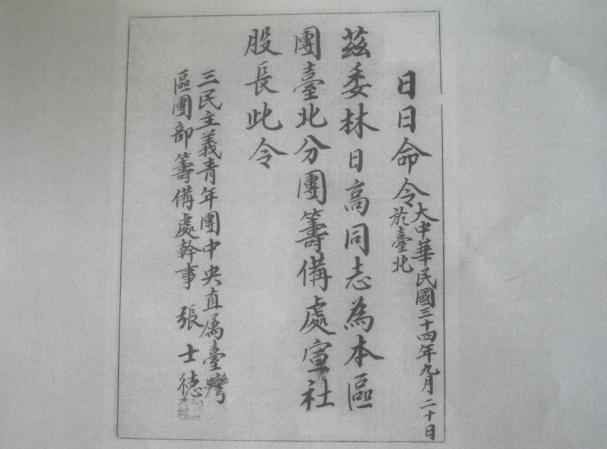 日日命令
大中華民國三十四年九月二十日
於臺北
茲委林日高同志為本區
團臺北分團籌備處宣社
股長此令
三民主義青年團中央直属臺灣
區團部籌備處幹事 張士德